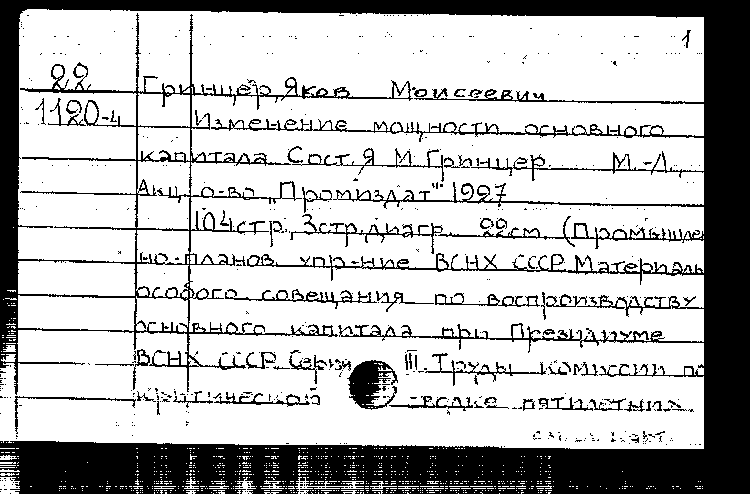 1
22
Гринцер, Яков Моисеевич
1120-4
Изменение мощности основного
капитала Сост. Я М. Гринцер. М.-Л.,
Акц. о-во „Промиздат" 1927
104стр., 3стр.диагр. 22см. (Промышлен
но-планов. упр-ние ВСНХ СССР. Материалы
особого совещания по воспроизводству
основного капитала при Президиуме
ВСНХ СССР. Серия III. Труды комиссии по
критической -водке пятилетних